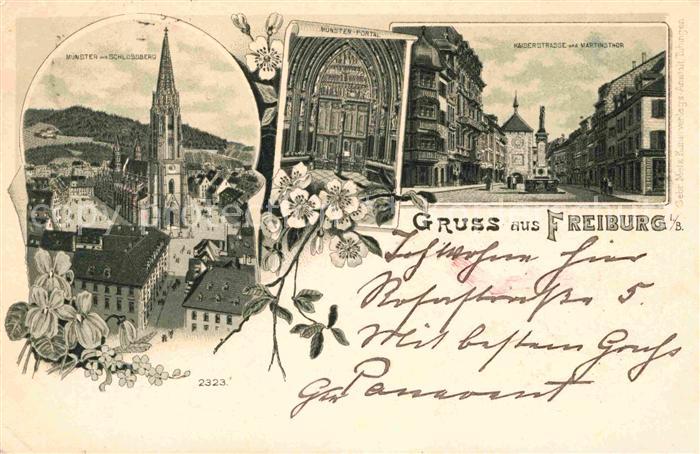 MÜNSTER UND SCHLOSSBERG
MÜNSTER-PORTAL
KAISERSTRASSE UND MARTINSTHOR
GRUSS aus FREIBURG i/B.
Ich wohne hier
5.
Mit bestem Gruß
2323.
Gebr. Metz, Kunstverlags-Anstalt, Tübingen.